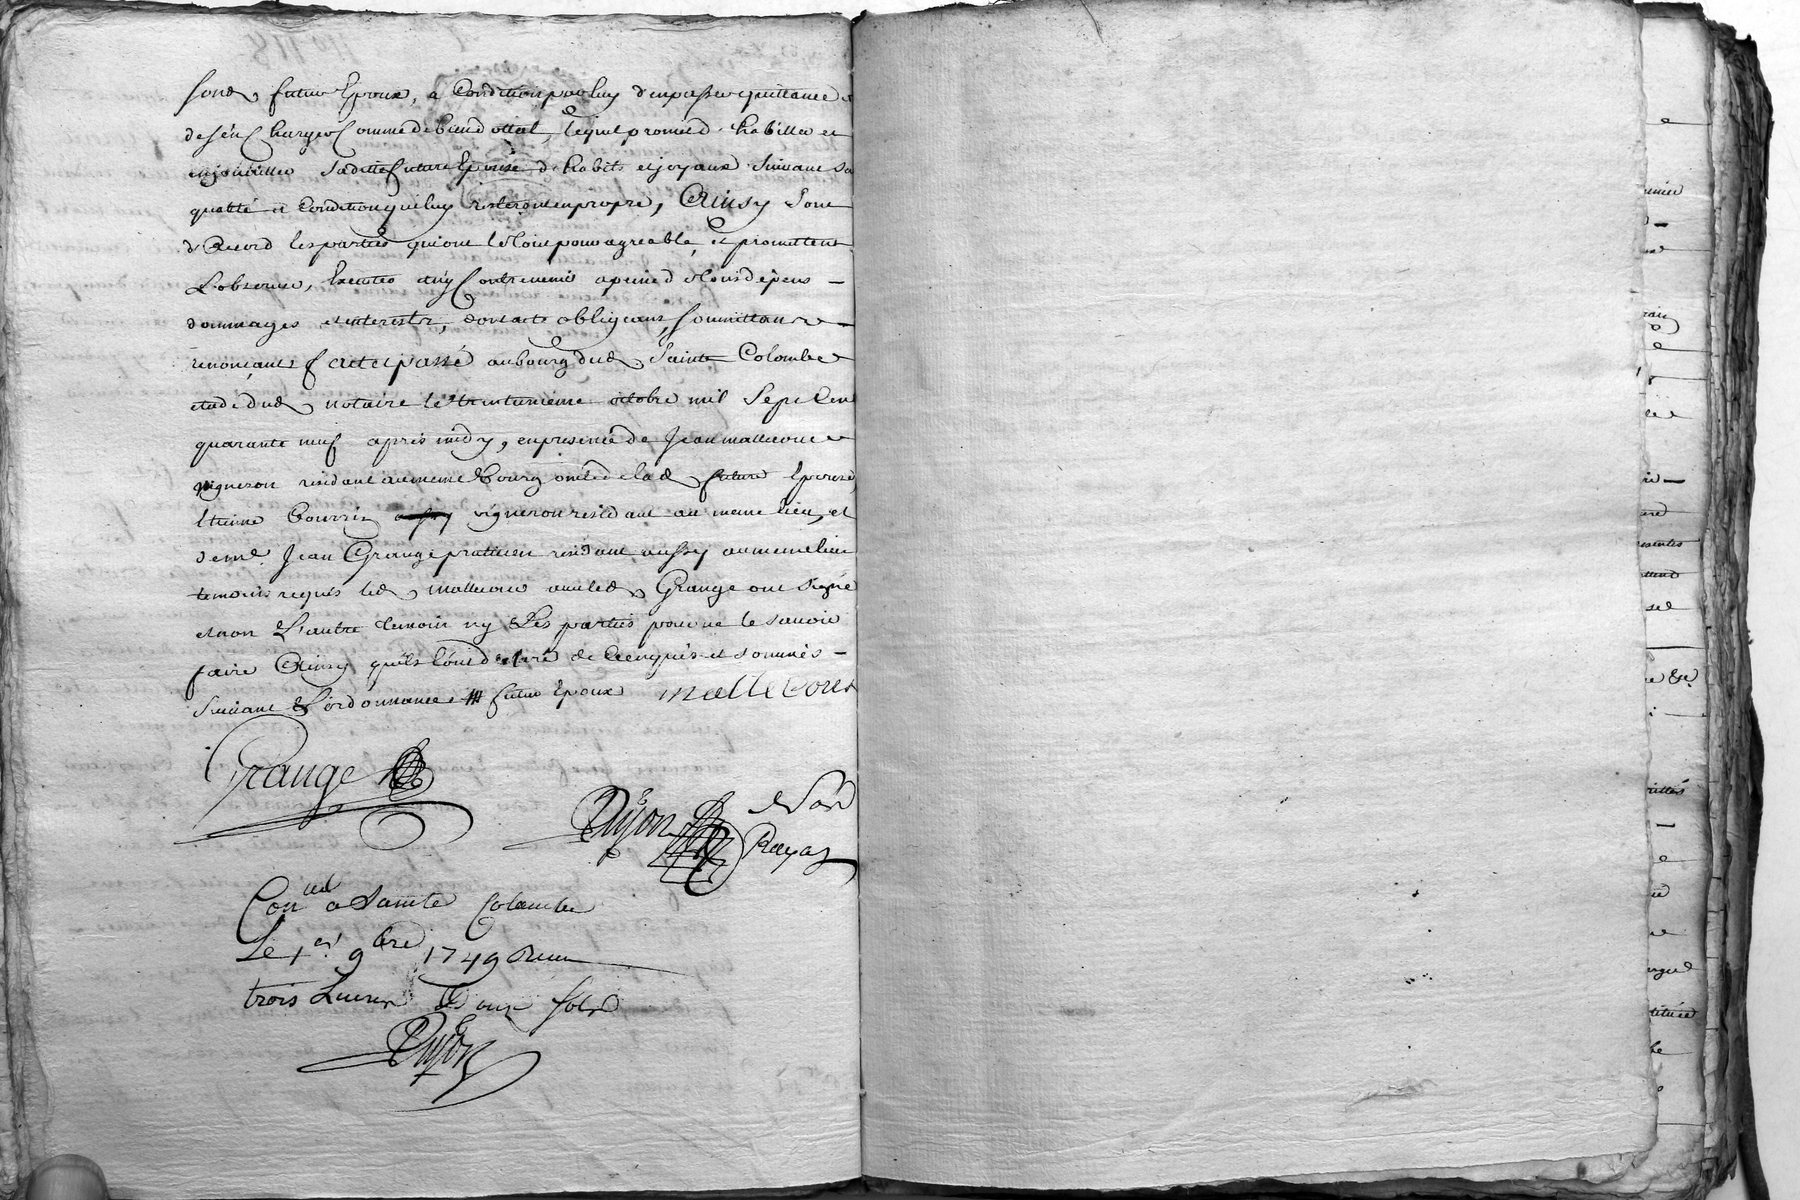 sond futur Epoux, a Condition par luy d'en passer quittance et
de s'en Charger Comme de bien dottal, lequel promet d'habiller et
enjoailler Saditte future Epouse d'habits et joyaux suivant sa
qualité et Condition qui luy resteront en propre, Ainsy sont
d'acord les parties qui ont le Tout pour agreable, et promettent
L'observer, Executer et n'y Contrevenir a peine de Tous dépens –
dommages et interests, dont acte obligeant, soumittant
renonçant fait et passé au bourg dud Sainte Colombe
etude dud notaire le trente unieme octobre mil sept Cent
quarante neuf apres midy, en presence de Jean mallecour
vigneron residant au meme Bourg oncle de lad future Epouse
Etienne Vigneron residant au meme lieu, et
Jean Grange praticien residant aussy au meme lieu
temoins requis led mallecour avec led Grange ont signé
et non L'autre temoin ny Les parties pour ne le savoir
faire Ainsy qu'ils l'ont declaré de ce enquis et sommés –
suivant L'ordonnance futur Epoux mallecour
Grange
Dujon Not
Royal
Con.lé a Sainte Colombe
Le 1er 9bre 1749 Reçu
trois Livres Douze sols
Dujon